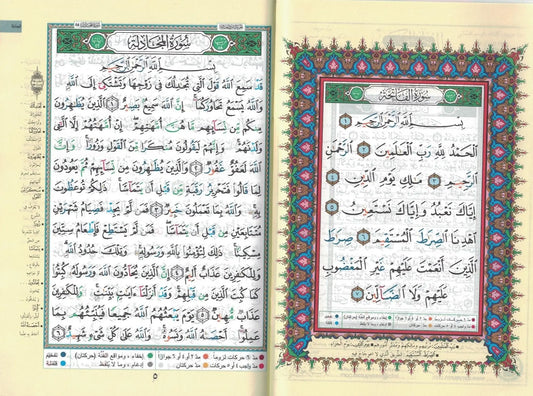 سُورَةُ الفَاتِحَةِ
بِسْمِ اللَّهِ الرَّحْمَٰنِ الرَّحِيمِ ١
الْحَمْدُ لِلَّهِ رَبِّ الْعَالَمِينَ ٢ الرَّحْمَٰنِ
الرَّحِيمِ ٣ مَالِكِ يَوْمِ الدِّينِ ٤
إِيَّاكَ نَعْبُدُ وَإِيَّاكَ نَسْتَعِينُ ٥
اهْدِنَا الصِّرَاطَ الْمُسْتَقِيمَ ٦ صِرَاطَ
الَّذِينَ أَنْعَمْتَ عَلَيْهِمْ غَيْرِ الْمَغْضُوبِ
عَلَيْهِمْ وَلَا الضَّالِّينَ ٧
سُورَةُ المُجَادلة
بِسْمِ اللَّهِ الرَّحْمَٰنِ الرَّحِيمِ
قَدْ سَمِعَ اللَّهُ قَوْلَ الَّتِي تُجَادِلُكَ فِي زَوْجِهَا وَتَشْتَكِي إِلَى اللَّهِ
وَاللَّهُ يَسْمَعُ تَحَاوُرَكُمَا إِنَّ اللَّهَ سَمِيعٌ بَصِيرٌ ١ الَّذِينَ يُظَاهِرُونَ
مِنكُم مِّن نِّسَائِهِم مَّا هُنَّ أُمَّهَاتِهِمْ إِنْ أُمَّهَاتُهُمْ إِلَّا اللَّائِي
وَلَدْنَهُمْ وَإِنَّهُمْ لَيَقُولُونَ مُنكَرًا مِّنَ الْقَوْلِ وَزُورًا وَإِنَّ
اللَّهَ لَعَفُوٌّ غَفُورٌ ٢ وَالَّذِينَ يُظَاهِرُونَ مِن نِّسَائِهِمْ ثُمَّ يَعُودُونَ
لِمَا قَالُوا فَتَحْرِيرُ رَقَبَةٍ مِّن قَبْلِ أَن يَتَمَاسَّا ذَٰلِكُمْ تُوعَظُونَ
بِهِ وَاللَّهُ بِمَا تَعْمَلُونَ خَبِيرٌ ٣ فَمَن لَّمْ يَجِدْ فَصِيَامُ شَهْرَيْنِ
مُتَتَابِعَيْنِ مِن قَبْلِ أَن يَتَمَاسَّا فَمَن لَّمْ يَسْتَطِعْ فَإِطْعَامُ سِتِّينَ
مِسْكِينًا ذَٰلِكَ لِتُؤْمِنُوا بِاللَّهِ وَرَسُولِهِ وَتِلْكَ حُدُودُ اللَّهِ
وَلِلْكَافِرِينَ عَذَابٌ أَلِيمٌ ٤ إِنَّ الَّذِينَ يُحَادُّونَ اللَّهَ وَرَسُولَهُ كُبِتُوا
كَمَا كُبِتَ الَّذِينَ مِن قَبْلِهِمْ وَقَدْ أَنزَلْنَا آيَاتٍ بَيِّنَاتٍ وَلِلْكَافِرِينَ
عَذَابٌ مُّهِينٌ ٥ يَوْمَ يَبْعَثُهُمُ اللَّهُ جَمِيعًا فَيُنَبِّئُهُم بِمَا
عَمِلُوا أَحْصَاهُ اللَّهُ وَنَسُوهُ وَاللَّهُ عَلَىٰ كُلِّ شَيْءٍ شَهِيدٌ ٦
٥